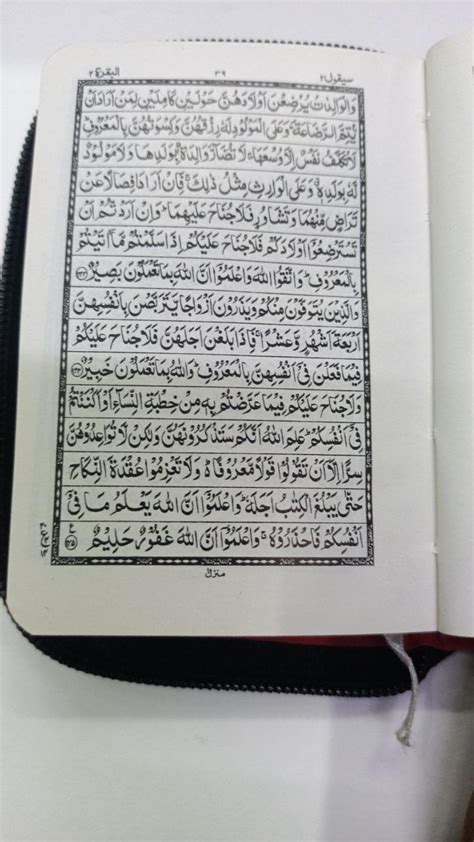 سيقول ٢ ٣٩ البقرة ٢
وَالْوَالِدٰتُ يُرْضِعْنَ اَوْلَادَهُنَّ حَوْلَيْنِ كَامِلَيْنِ لِمَنْ اَرَادَ اَنْ
يُّتِمَّ الرَّضَاعَةَ ؕ وَعَلَى الْمَوْلُوْدِ لَهٗ رِزْقُهُنَّ وَكِسْوَتُهُنَّ بِالْمَعْرُوْفِ ؕ
لَا تُكَلَّفُ نَفْسٌ اِلَّا وُسْعَهَا ۚ لَا تُضَآرَّ وَالِدَةٌۢ بِوَلَدِهَا وَلَا مَوْلُوْدٌ
لَّهٗ بِوَلَدِهٖ ۗ وَعَلَى الْوَارِثِ مِثْلُ ذٰلِكَ ۚ فَاِنْ اَرَادَا فِصَالًا عَنْ
تَرَاضٍ مِّنْهُمَا وَتَشَاوُرٍ فَلَا جُنَاحَ عَلَيْهِمَا ؕ وَاِنْ اَرَدْتُّمْ اَنْ
تَسْتَرْضِعُوْۤا اَوْلَادَكُمْ فَلَا جُنَاحَ عَلَيْكُمْ اِذَا سَلَّمْتُمْ مَّاۤ اٰتَيْتُمْ
بِالْمَعْرُوْفِ ؕ وَاتَّقُوا اللّٰهَ وَاعْلَمُوْۤا اَنَّ اللّٰهَ بِمَا تَعْمَلُوْنَ بَصِيْرٌ ﴿۲۳۳﴾
وَالَّذِيْنَ يُتَوَفَّوْنَ مِنْكُمْ وَيَذَرُوْنَ اَزْوَاجًا يَّتَرَبَّصْنَ بِاَنْفُسِهِنَّ
اَرْبَعَةَ اَشْهُرٍ وَّعَشْرًا ۚ فَاِذَا بَلَغْنَ اَجَلَهُنَّ فَلَا جُنَاحَ عَلَيْكُمْ
فِيْمَا فَعَلْنَ فِيْۤ اَنْفُسِهِنَّ بِالْمَعْرُوْفِ ؕ وَاللّٰهُ بِمَا تَعْمَلُوْنَ خَبِيْرٌ ﴿۲۳۴﴾
وَلَا جُنَاحَ عَلَيْكُمْ فِيْمَا عَرَّضْتُمْ بِهٖ مِنْ خِطْبَةِ النِّسَآءِ اَوْ اَكْنَنْتُمْ
فِيْۤ اَنْفُسِكُمْ ؕ عَلِمَ اللّٰهُ اَنَّكُمْ سَتَذْكُرُوْنَهُنَّ وَلٰكِنْ لَّا تُوَاعِدُوْهُنَّ
سِرًّا اِلَّاۤ اَنْ تَقُوْلُوْا قَوْلًا مَّعْرُوْفًا ؕ وَلَا تَعْزِمُوْا عُقْدَةَ النِّكَاحِ
حَتّٰى يَبْلُغَ الْكِتٰبُ اَجَلَهٗ ؕ وَاعْلَمُوْۤا اَنَّ اللّٰهَ يَعْلَمُ مَا فِيْۤ
اَنْفُسِكُمْ فَاحْذَرُوْهُ ۚ وَاعْلَمُوْۤا اَنَّ اللّٰهَ غَفُوْرٌ حَلِيْمٌ ﴿۲۳۵﴾
منزل